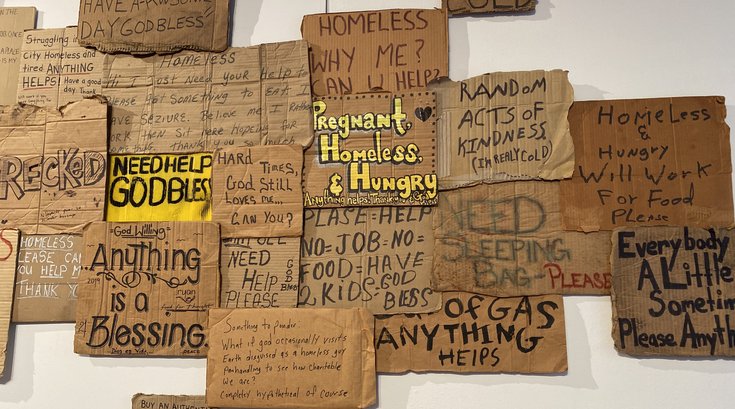 HAVE A-AWSOME
DAY GODBLESS
Struggling in
City Homeless and
tired ANYTHING
HELPS! Have a good
day. Thank
Homeless
Hi I Just Need Your Help to
PLEASE Got Something to EAT I
HAVE SEIZURE. Beleve Me I Rather
Work then Sit here Hopeing for
Something. thank you so much
HOMELESS
WHY ME?
CAN U HELP?
RANDOM
ACTS OF
KINDNESS
(IM REALY COLD)
HOMELESS
&
HUNGRY
Will Work
For Food
Please
WRECKED
NEED HELP
GODBLESS
HARD TIMES,
God Still
Loves me...
CAN YOU?
Pregnant,
Homeless,
& Hungry
Anything helps, Thank you
HOMELESS
PLEASE CAN
YOU HELP ME
THANK YOU
God Willing
Anything
is a
Blessing.
2019
peace
NEED
HELP
PLEASE
GOD
BLESS
PLASE=HELP
NO=JOB=NO=
FOOD=HAVE
2 KIDS-GOD
BLESS
NEED
SLEEPING
BAG PLEASE
Everybody
A Little
Sometim
Please Anyth
OF GAS
ANYTHING
HElPS
Something to ponder
What if god occasionally visits
Earth disguised as a homeless guy
Panhandling to see how charitable
We are?
Completely hypothetical of course
BUY AN AUTHENT